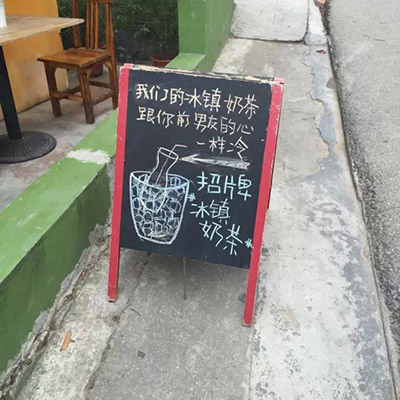 我们的冰镇奶茶
跟你前男友的心
一样冷
招牌
*冰镇
奶茶*